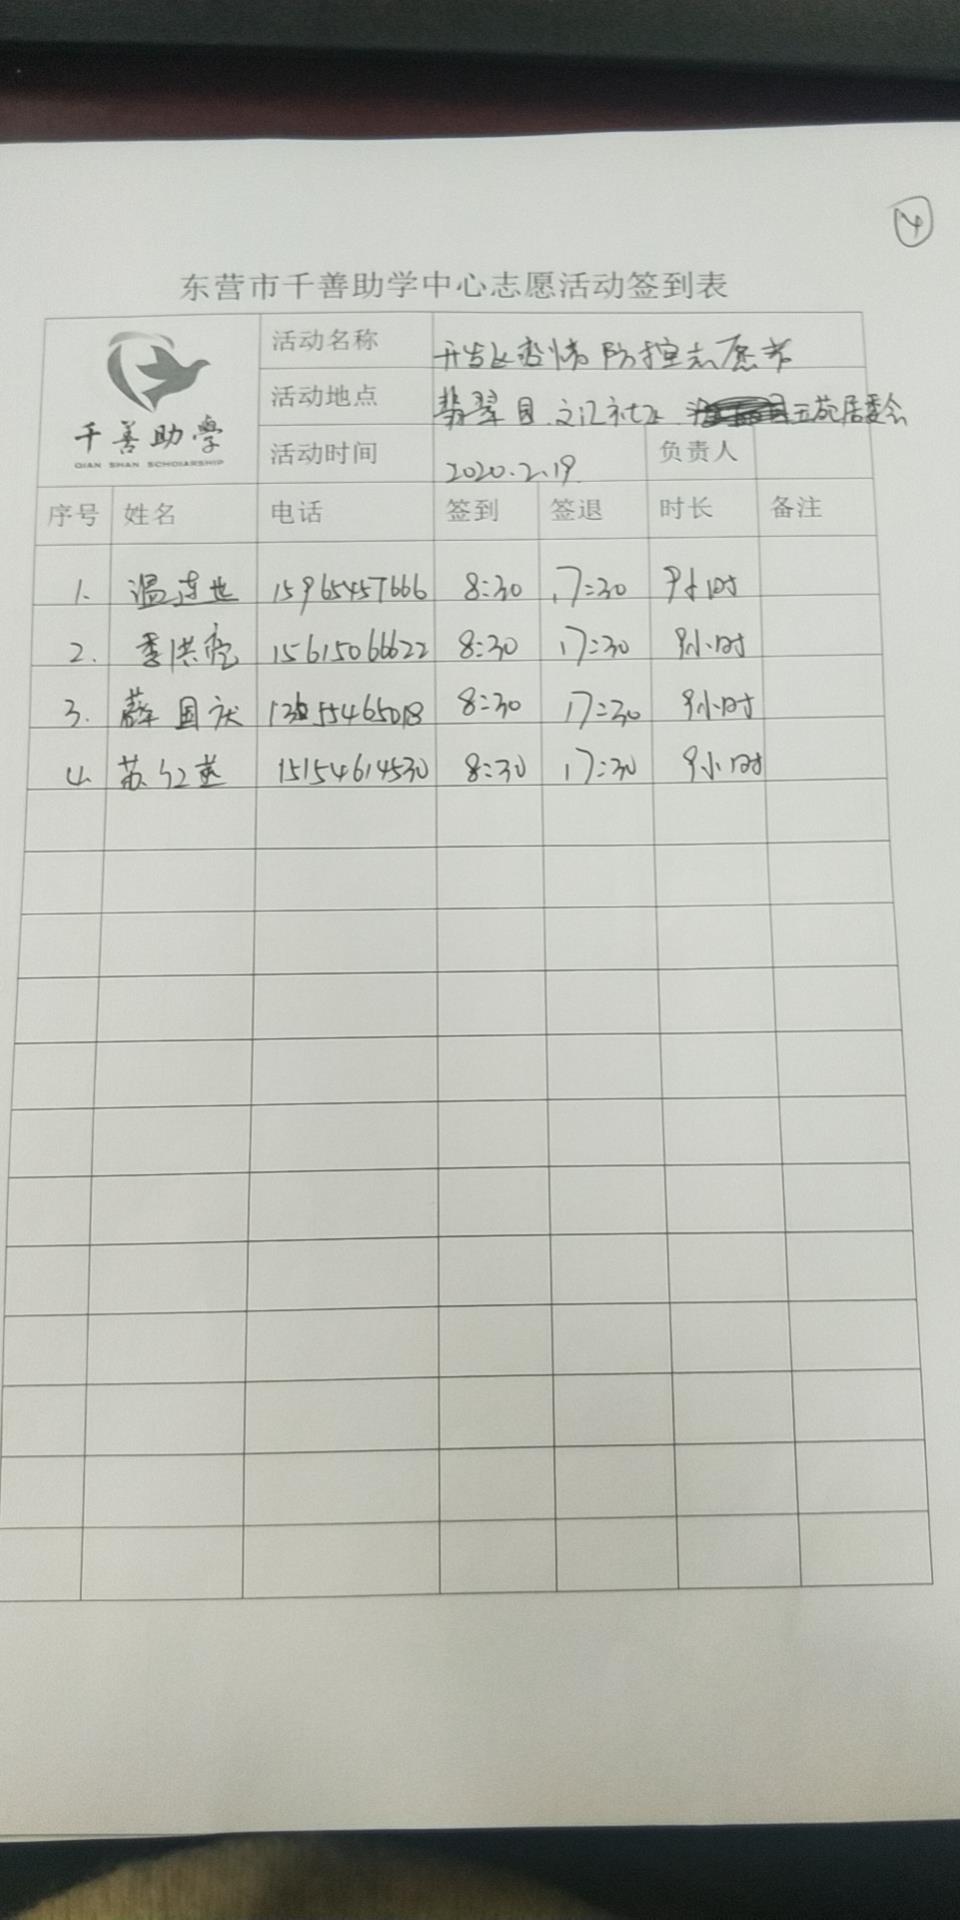 4
东营市千善助学中心志愿活动签到表
千善助学
QIAN SHAN SCHOLARSHIP
活动名称 开发区疫情防控志愿者
活动地点 翡翠园.文汇社区 五苑居委会
活动时间 2020.2.19 负责人
序号 姓名 电话 签到 签退 时长 备注
1. 温连世 15965457666 8:30 17:30 9小时
2. 季洪亮 15615066622 8:30 17:30 9小时
3. 薛国庆 8:30 17:30 9小时
4. 苏红燕 15154614530 8:30 17:30 9小时